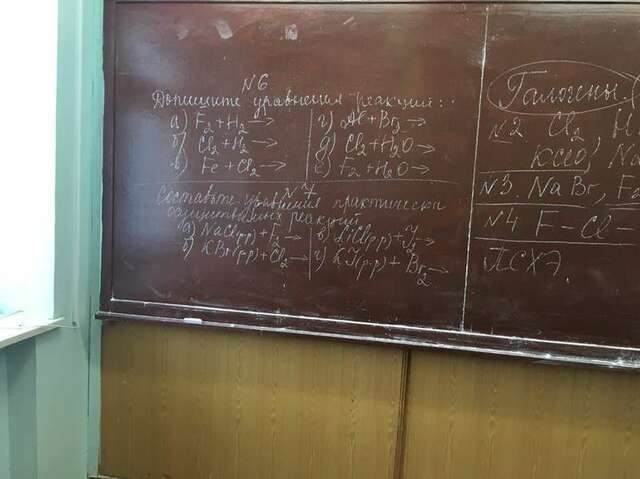 №6
Допишите уравнения реакций:
а) F₂ + H₂ →
б) Cl₂ + H₂ →
в) Fe + Cl₂ →
г) Al + Br₂ →
д) Cl₂ + H₂O →
е) F₂ + H₂O →
№7
Составьте уравнения практически
осуществимых реакций
а) NaCl(р-р) + F₂ →
б) KBr(р-р) + Cl₂ →
в) LiCl(р-р) + I₂ →
г) KI(р-р) + Br₂ →
Галогены
№2 Cl₂, H
KClO, Na
№3. NaBr, F₂
№4 F – Cl –
ПСХЭ.